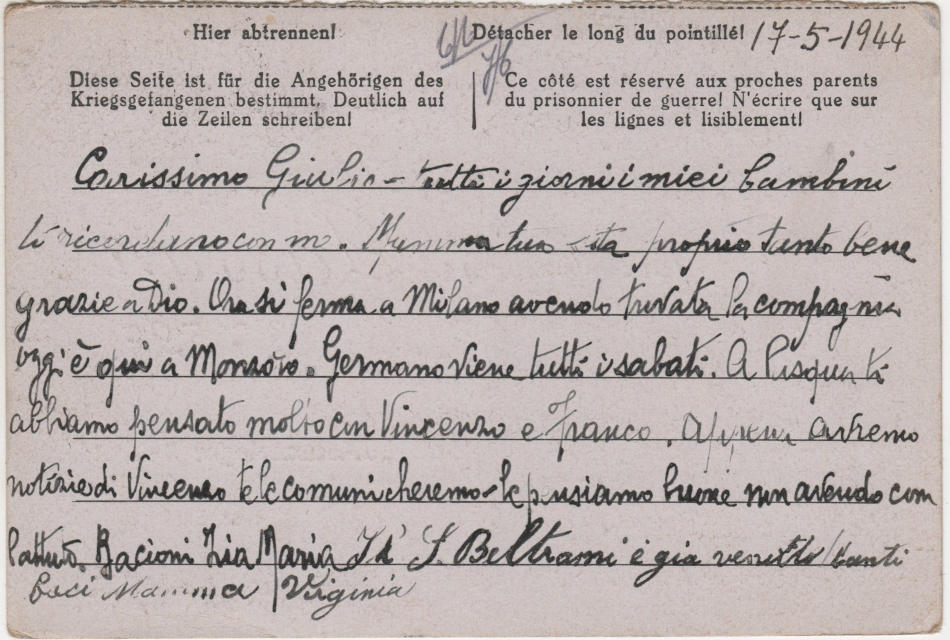 Hier abtrennen!
Détacher le long du pointillé! 17-5-1944
Diese Seite ist für die Angehörigen des
Kriegsgefangenen bestimmt. Deutlich auf
die Zeilen schreiben!
Ce côté est réservé aux proches parents
du prisonnier de guerre! N'écrire que sur
les lignes et lisiblement!
Carissimo Giulio - tutti i giorni i miei bambini
ti ricordano con m. Mamma tua sta proprio tanto bene
grazie a Dio. Ora si ferma a Milano avendo trovata la compagnia
oggi è qui a Monzoro. Germano viene tutti i sabati. A Pasqua ti
abbiamo pensato molto con Vincenzo e Franco. Appena avremo
notizie di Vincenzo te le comunicheremo - le pensiamo buone non avendo com
battuto. Bacioni Zia Maria S. Beltrami è già venuto / tanti
baci Mamma / Virginia